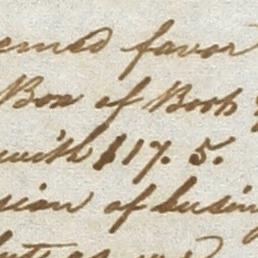 emed favor
Box of Books
with $17. 5.
sion of busin